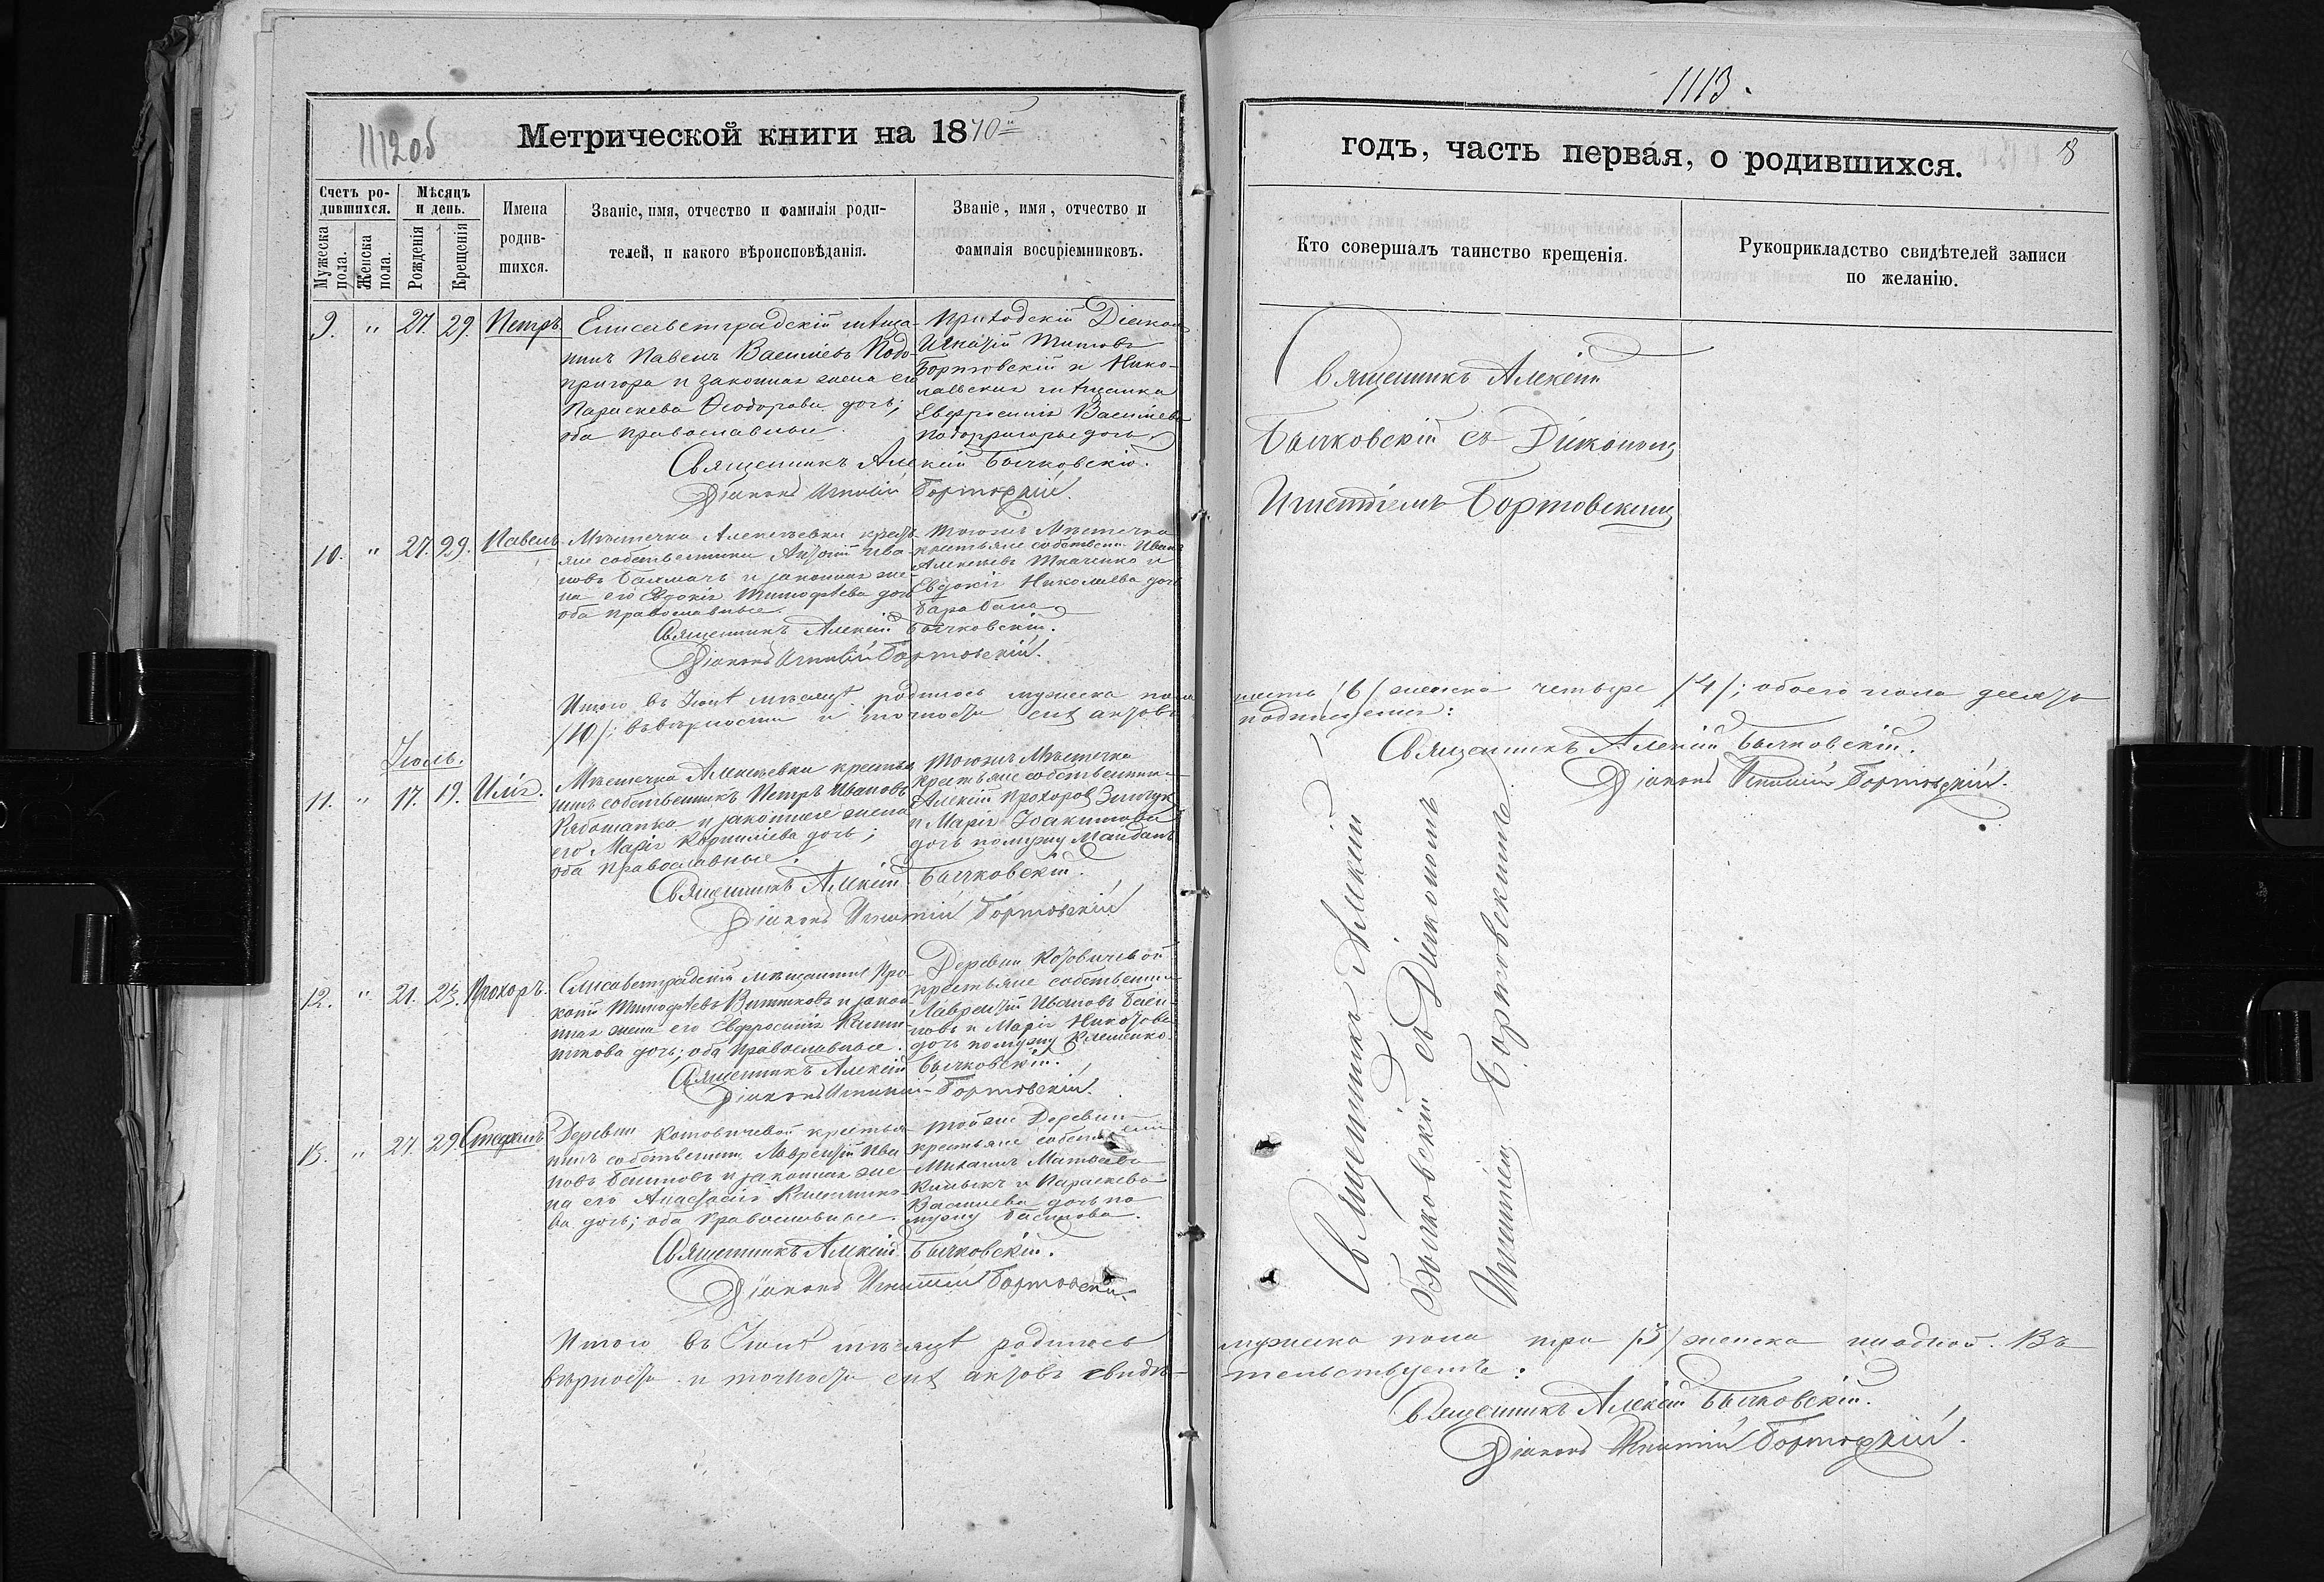 1112 об
Метрической книги на 1870
Счетъ ро-
дившихся.
Мѣсяцъ
и день.
Мужеска
пола.
Женска
пола.
Рожденія
Крещенія
Имена
родив-
шихся.
Званіе, имя, отчество и фамилія роди-
телей, и какого вѣроисповѣданія.
Званіе, имя, отчество и
фамилія воспріемниковъ.
9. " 27. 29. Петръ
Елисаветградскій мѣща-
нинъ Павелъ Василіевъ Подо-
пригора и законная жена его
Параскева Ѳеодорова дочь;
оба православные.
Приходскій Діаконъ
Игнатій Титовъ
Бортовскій и Нико-
лаевская мѣщанка
Евфросинія Василіева
дочь.
Священникъ Алексій Бычковскій.
Діаконъ Игнатій Бортовскій.
10. " 27. 29. Павелъ
Мѣстечка Алексѣевки кресть-
яне собственники Антоній Ива-
новъ и законная же-
на его Евдокія Тимофѣева дочь
оба православные.
Тогожъ Мѣстечка
крестьяне собствен. Иванъ
Алексѣевъ Ткаченко и
Евдокія Николаева дочь
Барабана
Священникъ Алексій Бычковскій.
Діаконъ Игнатій Бортовскій.
Итого въ мѣсяцѣ родилось мужеска пола
/10/; въ вѣрности и точности сихъ актовъ
Іюль.
11. " 17. 19. Илія.
Мѣстечка Алексѣевки крестья-
нинъ собственникъ Петръ Ивановъ
Рябошапка и законная жена
его Марія Корниліева дочь;
оба православные.
Тогожъ Мѣстечка
крестьяне собственники
Алексій Прохоровъ
и Марія Іоакимова
дочь по мужу Майданъ
Священникъ Алексій Бычковскій.
Діаконъ Игнатій Бортовскій
12. " 21. 23. Прохоръ.
Елисаветградскій мѣщанинъ Про-
копій Тимофѣевъ и закон-
ная жена его Евфросинія
дочь; оба православные.
Деревни
крестьяне собственники
Лаврентій Ивановъ
и Марія
дочь по мужу Клименко.
Священникъ Алексій Бычковскій.
Діаконъ Игнатій Бортовскій.
13. " 27. 29. Стефанъ
Деревни крестья-
нинъ собственникъ Лаврентій Ива-
новъ и законная же-
на его Анастасія
дочь; оба Православные.
Той же Деревни
крестьяне собственники
Михаилъ
и Параскева
Василіева дочь по
мужу
Священникъ Алексій Бычковскій.
Діаконъ Игнатій Бортовскій.
Итого въ мѣсяцѣ родилось
вѣрности и точности сихъ актовъ свидѣ-
1113.
годъ, часть первая, о родившихся.
Кто совершалъ таинство крещенія.
Рукоприкладство свидѣтелей записи
по желанію.
Священникъ Алексій
Бычковскій съ Діакономъ
Игнатіемъ Бортовскимъ
шесть /6/ женска четыре /4/; обоего пола десять
подписуемся:
Священникъ Алексій Бычковскій.
Діаконъ Игнатій Бортовскій.
Священникъ Алексій
Бычковскій съ Діакономъ
Игнатіемъ Бортовскимъ
мужеска пола три /3/ женска ниодной. Въ
тельствуемъ:
Священникъ Алексій Бычковскій.
Діаконъ Игнатій Бортовскій.